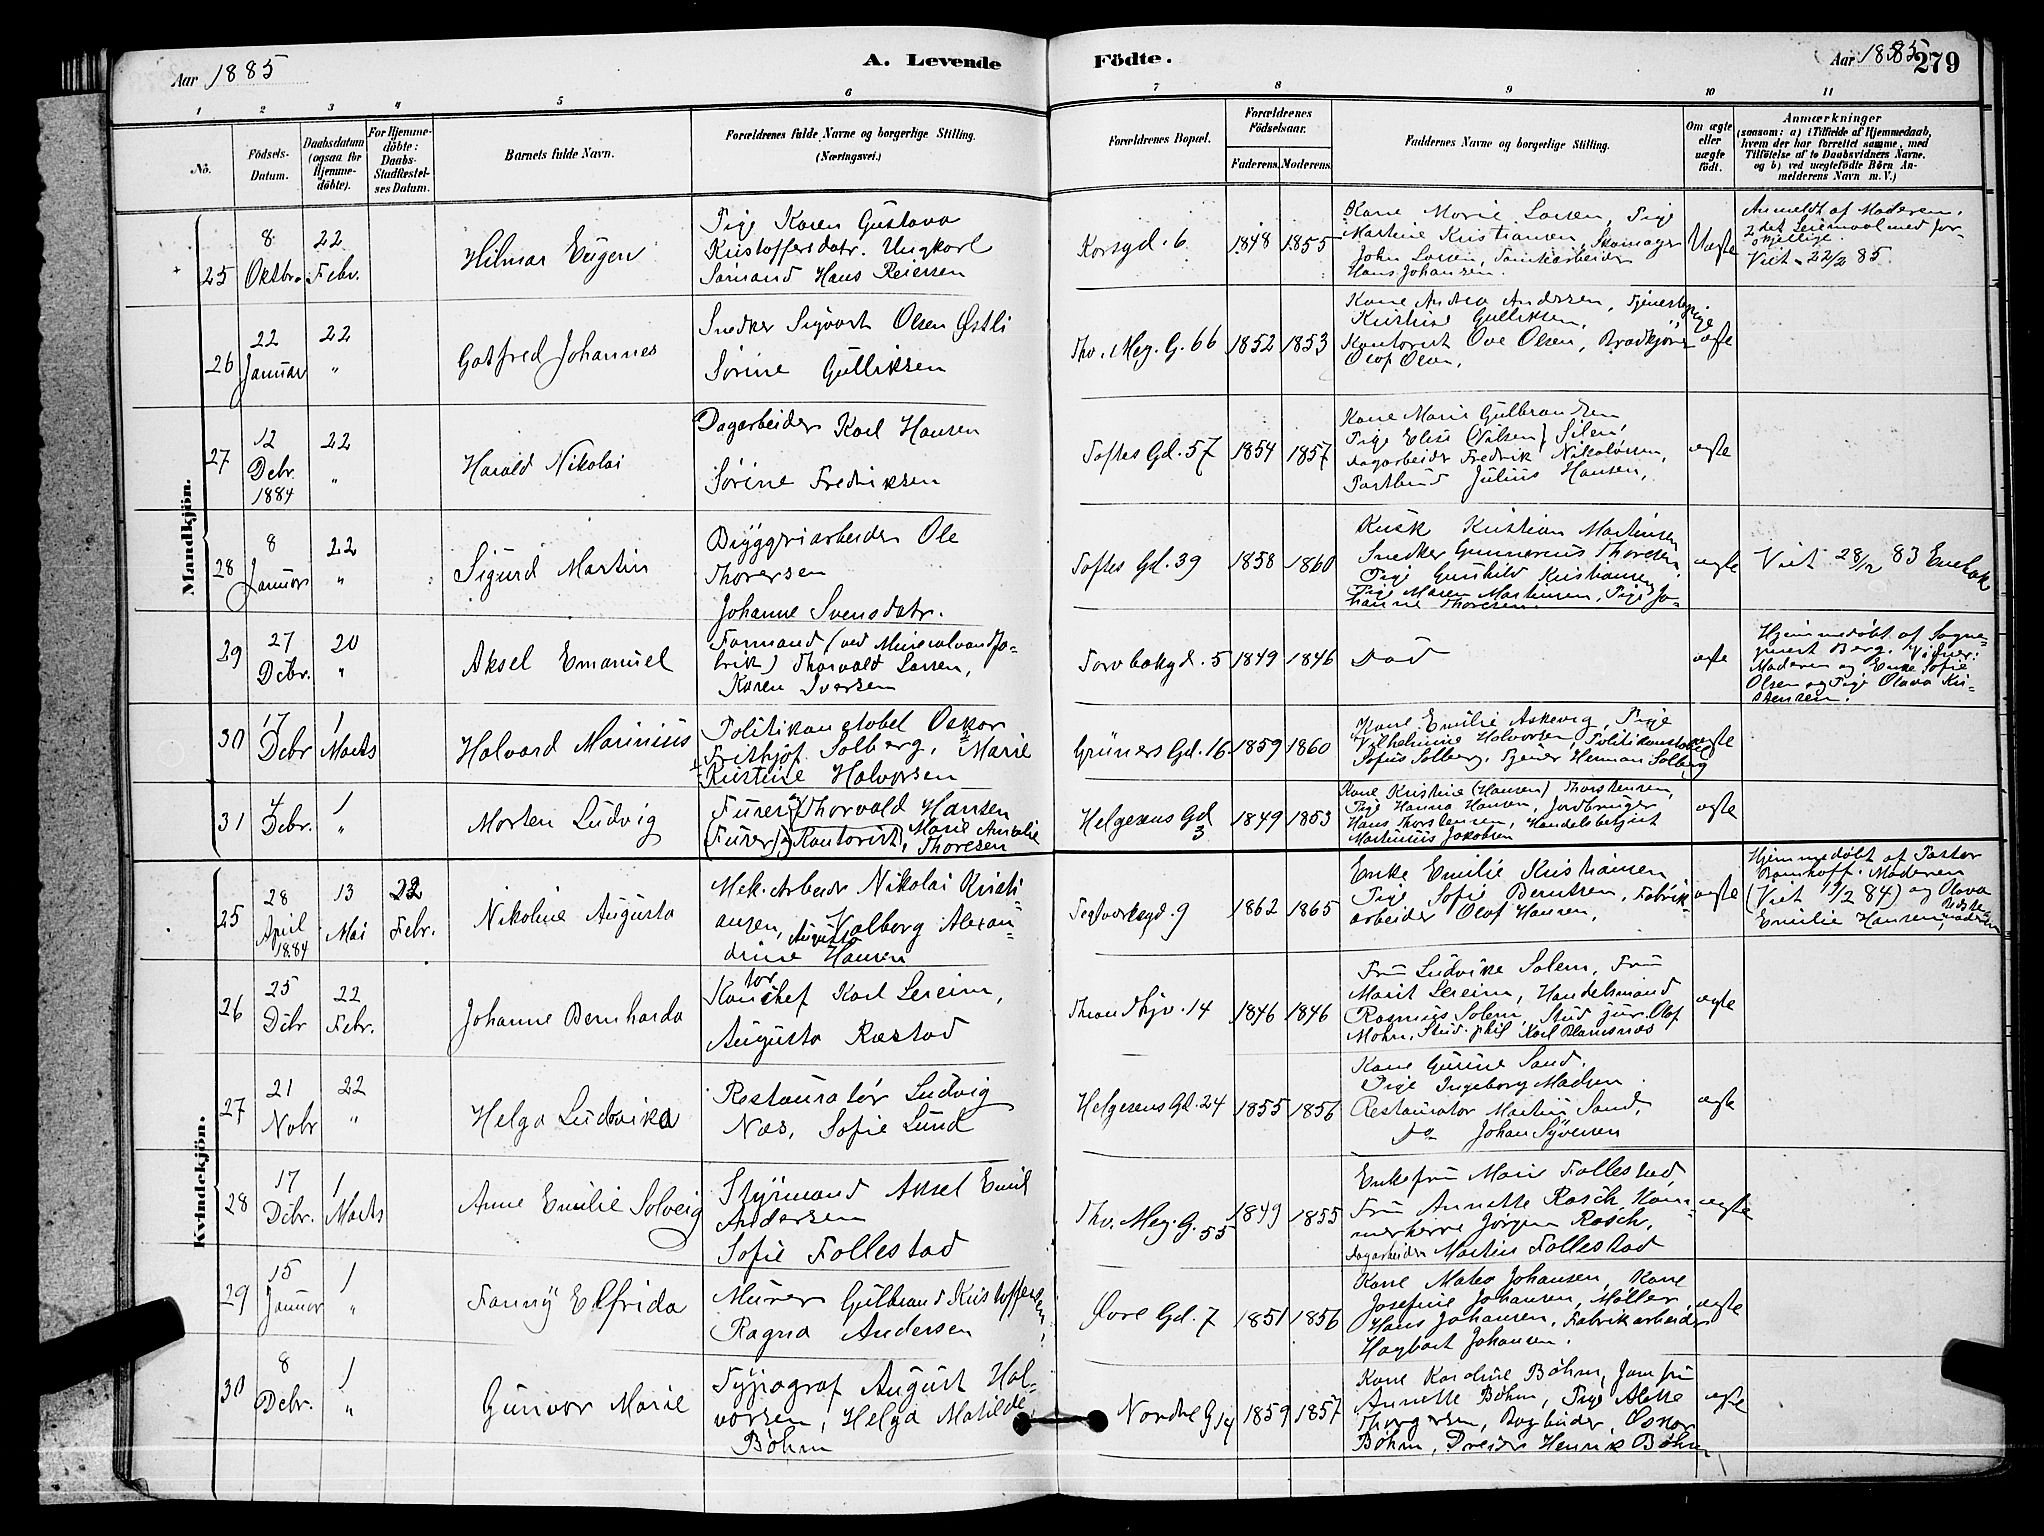 Aar 1885
A. Levende Födte.
Aar 1885
279
1 2 3 4 5 6 7 8 9 10 11
No.
Födsels-Datum.
Daabsdatum (ogsaa for Hjemme-döbte).
For Hjemme-döbte: Daabs-Stadfæstel-ses Datum.
Barnets fulde Navn.
Forældrenes fulde Navne og borgerlige Stilling.
(Næringsvei.)
Forældrenes Bopæl.
Forældrenes Födselsaar.
Faderens. Moderens.
Faddernes Navne og borgerlige Stilling.
Om ægte eller uægte födt.
Anmærkninger
(saasom: a) i Tilfælde af Hjemmedaab,
hvem der har forrettet samme, med
Tilföielse af to Daabsvidners Navne.
og b) ved uægtefödte Börn An-
melderens Navn m. V.)
Mandkjön.
25
8 Oktbr.
22 Febr.
Hilmar Eugen
Pige Karen Gustava
Kristoffersdatr. Ungkarl
Sømand Hans Reiersen
Korsgd. 6
1848
1855
Kone Marie Larsen, Pige
Martine Kristiansen, Skomager
John Larsen, Fabrikarbeider
Hans Johansen.
Uægte
Anmeldt af Moderen.
2det Leiermaal med for-
skjellige.
Viet 22/2 85.
26
22 Januar
22 "
Gotfred Johannes
Snedker Sigvart Olsen Østli
Sørine Gulliksen
Thv. Mey. G. 66
1852
1853
Kone Andrea Andersen, Tjenestepige
Kristine Gulliksen,
Kontorist Ove Olsen, Brødkjører
Olof Olsen.
ægte
27
12 Debr. 1884
22 "
Harald Nikolai
Dagarbeider Karl Hansen
Sørine Fredriksen
Toftes Gd. 57
1854
1857
Kone Marie Gulbrandsen
Pige Elise (Nilsen) Silen,
Dagarbeider Fredrik Nikolaisen,
Postbud Julius Hansen,
ægte
28
8 Januar
22 "
Sigurd Martin
Bryggeriarbeider Ole
Thoresen
Johanne Svensdatr.
Toftes Gd. 39
1858
1860
Kusk Kristian Martinsen
Snedker Gunnerius Thoresen
Pige Gunhild Kristiansen
Pige Maren Martinsen, Pige Jo-
hanne Thoresen
ægte
Viet 28/12 83 Enebak
29
27 Debr.
20 "
Aksel Emanuel
Formand (ved Mineralvandfa-
brik) Thorvald Larsen,
Karen Iversen
Torvbakgd. 5
1849
1846
Død
ægte
Hjemmedøbt af Sogne-
prest Berg. Vidner:
Moderen og Enke Sofie
Olsen og Pige Olava Kri-
stensen.
30
17 Debr
1 Marts
Halvard Marinius
Politikonstabel Oskar
Frithjof Solberg, Marie
Kristine Halvorsen
Grüners Gd. 16
1859
1860
Kone Emilie Askevig, Pige
Vilhelmine Halvorsen, Politikonstabel
Sofus Solberg, Tjener Herman Solberg
ægte
31
4 Debr.
1 "
Morten Ludvig
Furer Thorvald Hansen
(Furer) Kontorist, Marie Amalie
Thoresen
Helgesens Gd 3
1849
1853
Kone Kristine (Hansen) Thorstensen,
Pige Hanna Hansen, Jordbruger
Hans Thorstensen, Handelsbetjent
Martinius Jakobsen
ægte
Kvindekjön.
25
28 April 1884
13 Mai
22 Febr.
Nikoline Augusta
Mek. Arbeider Nikolai Kristi-
ansen, Valborg Alexan-
drine Augusta Hansen
Teglverksgd. 9
1862
1865
Enke Emilie Kristiansen
Pige Sofie Berntsen, Fabrik-
arbeider Olof Hansen,
ægte
Hjemmedøbt af Pastor
Bomhoff. Moderen
(Viet 13/2 84) og Olava
Emilie Hansen,
26
25 Debr
22 Febr.
Johanne Bernharda
Kontorchef Karl Lereim,
Augusta Ræstad
Trondhjv. 14
1846
1846
Fru Ludvike Solem, Fru
Marit Lereim, Handelsmand
Rasmus Solem, Stud jur. Olaf
Mohn, Stud. phil Karl
ægte
27
21 Nobr
22 "
Helga Ludovika
Restauratør Ludvig
Næs, Sofie Lund
Helgesens Gd. 24
1855
1856
Kone Gurine Sand.
Pige Ingeborg Madsen
Restauratør Martin Sand,
Do Johan Syversen
ægte
28
17 Debr.
1 Marts
Anne Emilie Solveig
Styrmand Aksel Emil
Andersen
Sofie Follestad
Thv. Mey. G. 55
1849
1855
Enkefru Marie Follestad
Fru Annette Rasch, Kam-
merherre Jørgen Rasch,
Dagarbeider Martin Follestad
ægte
29
15 Januar
1 "
Fanny Elfrida
Murer Gulbrand Kristoffersen,
Ragna Andersen
Øvre Gd. 7
1851
1856
Kone Mathea Johansen, Kone
Josefine Johansen, Møller
Hans Johansen, Fabrikarbeider
Hagbart Johansen.
ægte
30
8 Debr.
1 "
Gunvor Marie
Typograf August Hal-
vorsen, Helga Matilde
Bøhm
Nordre G 14
1859
1857
Kone Karoline Bøhm, Jomfru
Annette Bøhm, Pige Alette
Thorgersen, Bogbinder Oskar
Bøhm, Dreier Henrik Bøhm
ægte